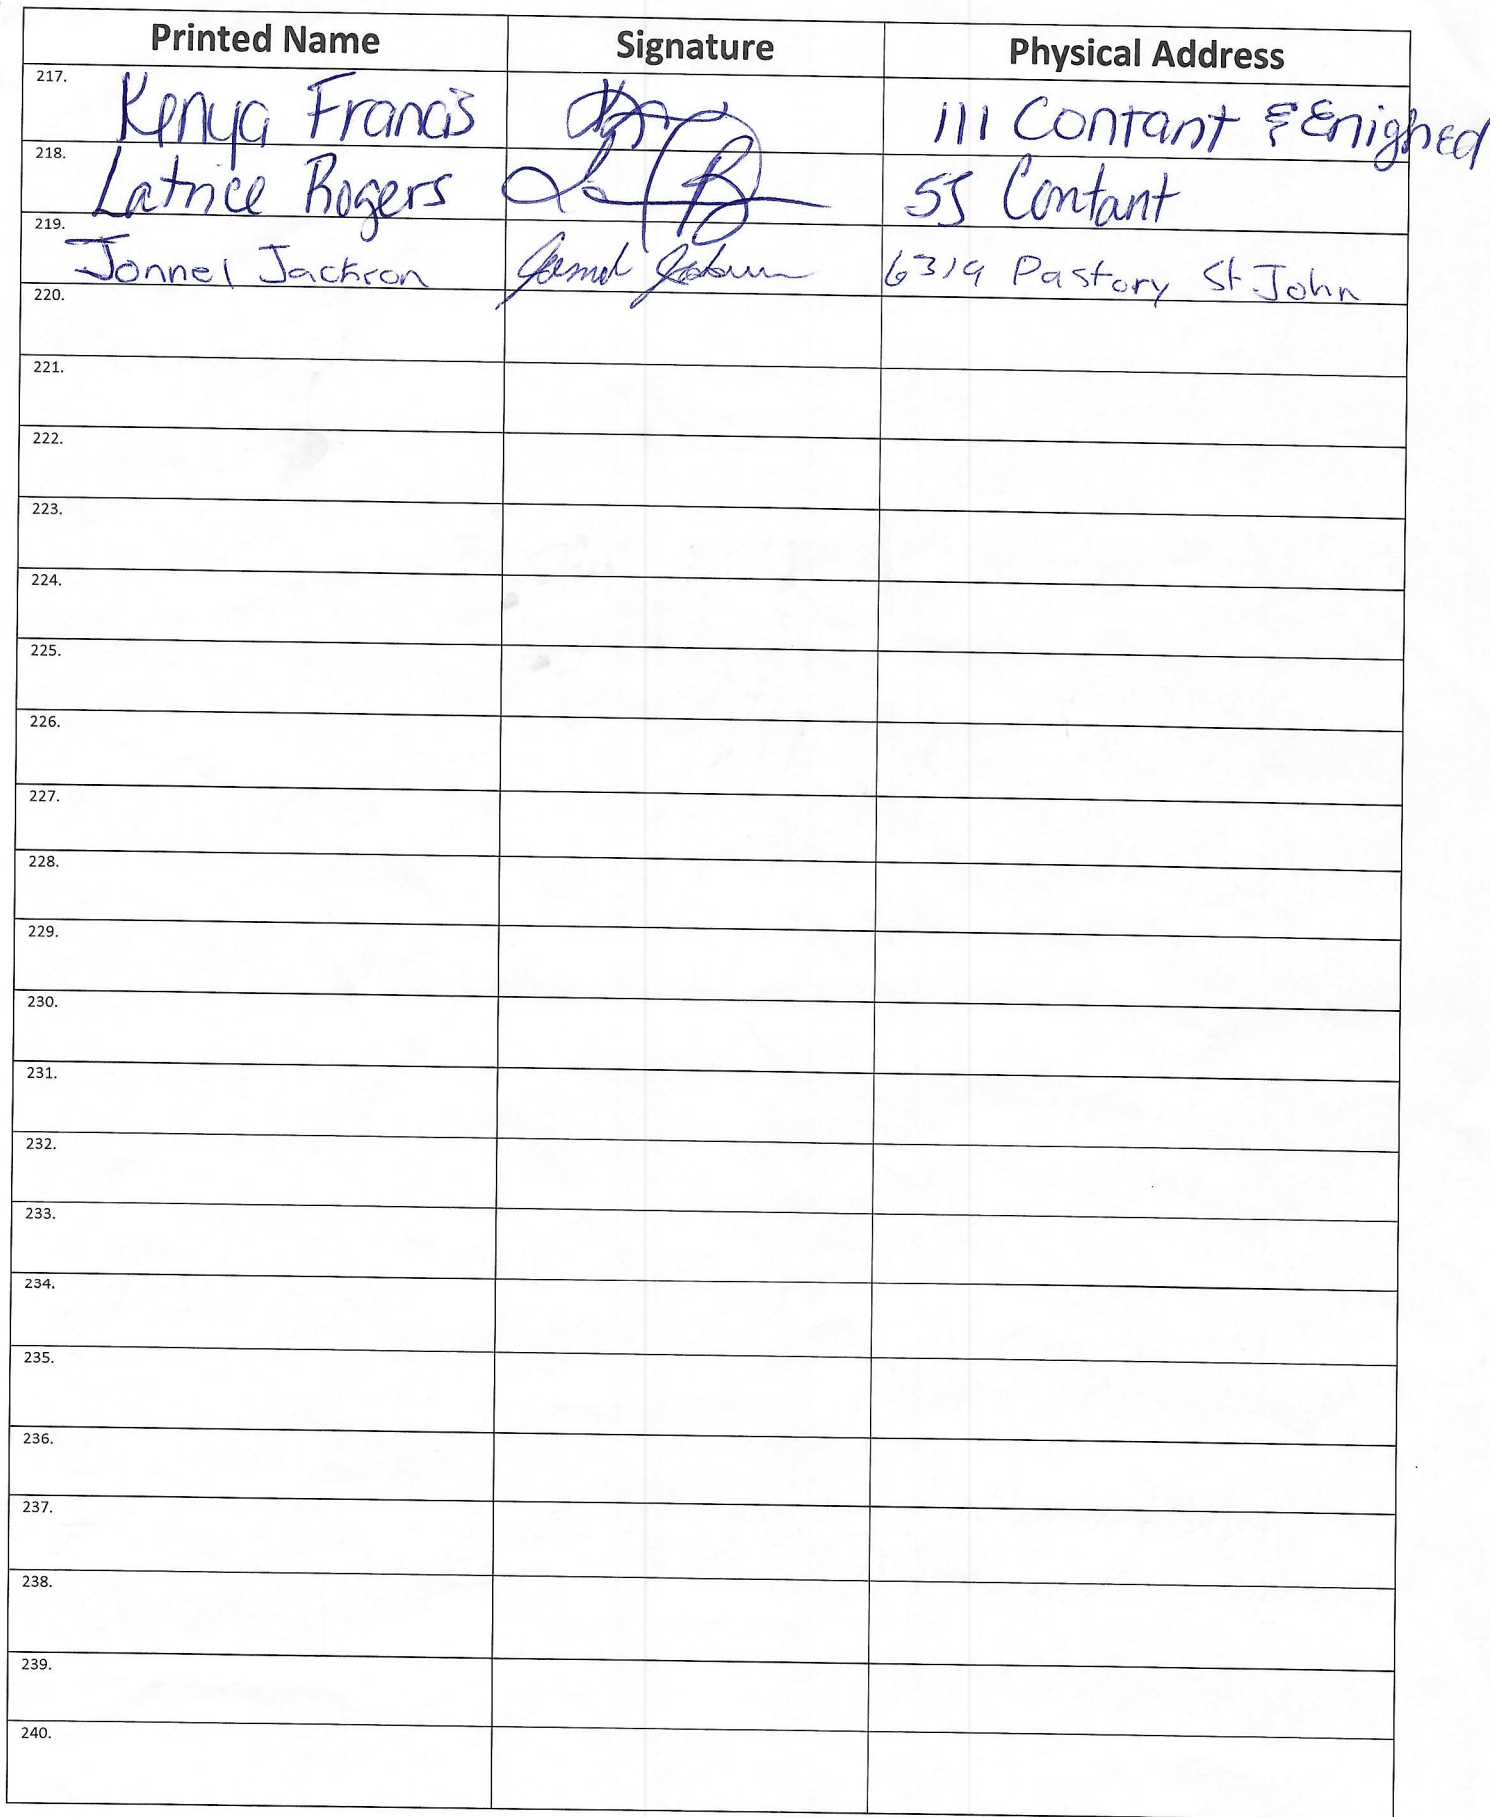 Printed Name Signature Physical Address
217. Kenya Francis 111 Contant & Enighed
218. Latrice Rogers 55 Contant
219. Jonnel Jackson 6319 Pastory St John
220.
221.
222.
223.
224.
225.
226.
227.
228.
229.
230.
231.
232.
233.
234.
235.
236.
237.
238.
239.
240.